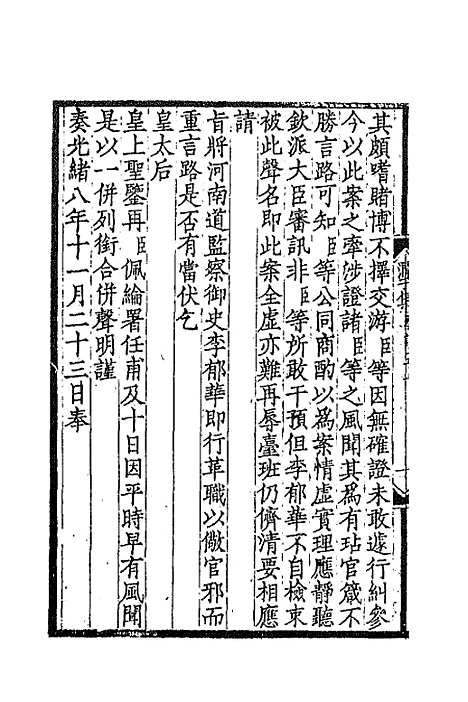 其頗嗜賭博不擇交游臣等因無確證未敢遽行糾參
今以此案之牽涉證諸臣等之風聞其為有玷官箴不
勝言路可知臣等公同商酌以為案情虛實理應靜聽
欽派大臣審訊非臣等所敢干預但李郁華不自檢束
被此聲名即此案全虛亦難再辱臺班仍儕清要相應
請
旨將河南道監察御史李郁華即行革職以儆官邪而
重言路是否有當伏乞
皇太后
皇上聖鑒再臣佩綸署任甫及十日因平時早有風聞
是以一併列銜合併聲明謹
奏光緒八年十一月二十三日奉